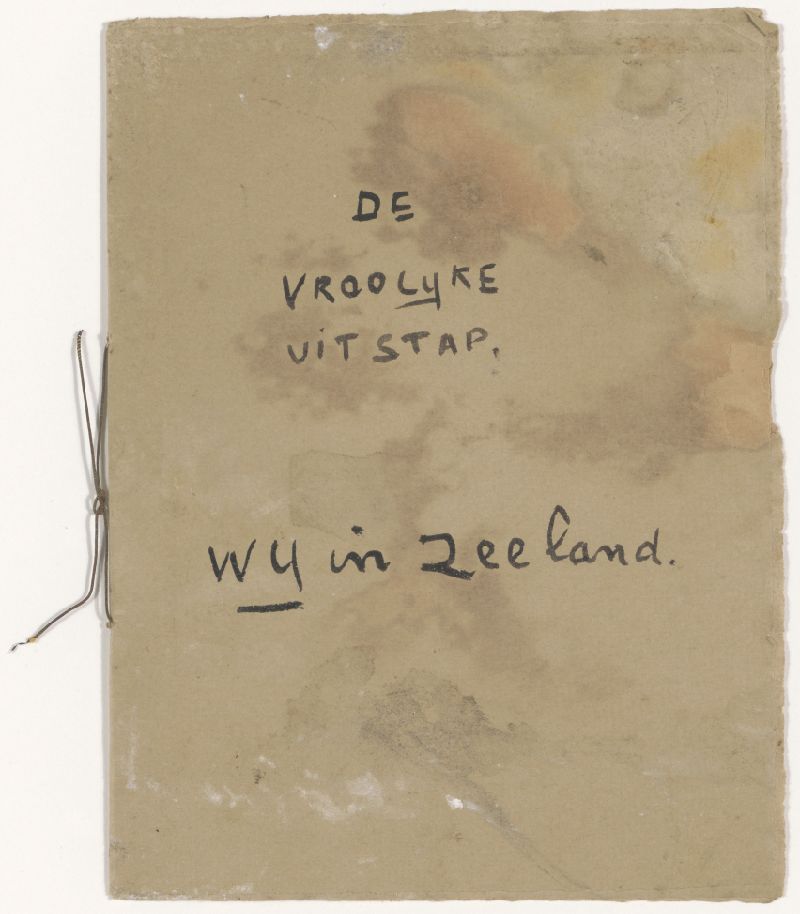 DE
VROOLYKE
UITSTAP.
Wy in Zeeland.